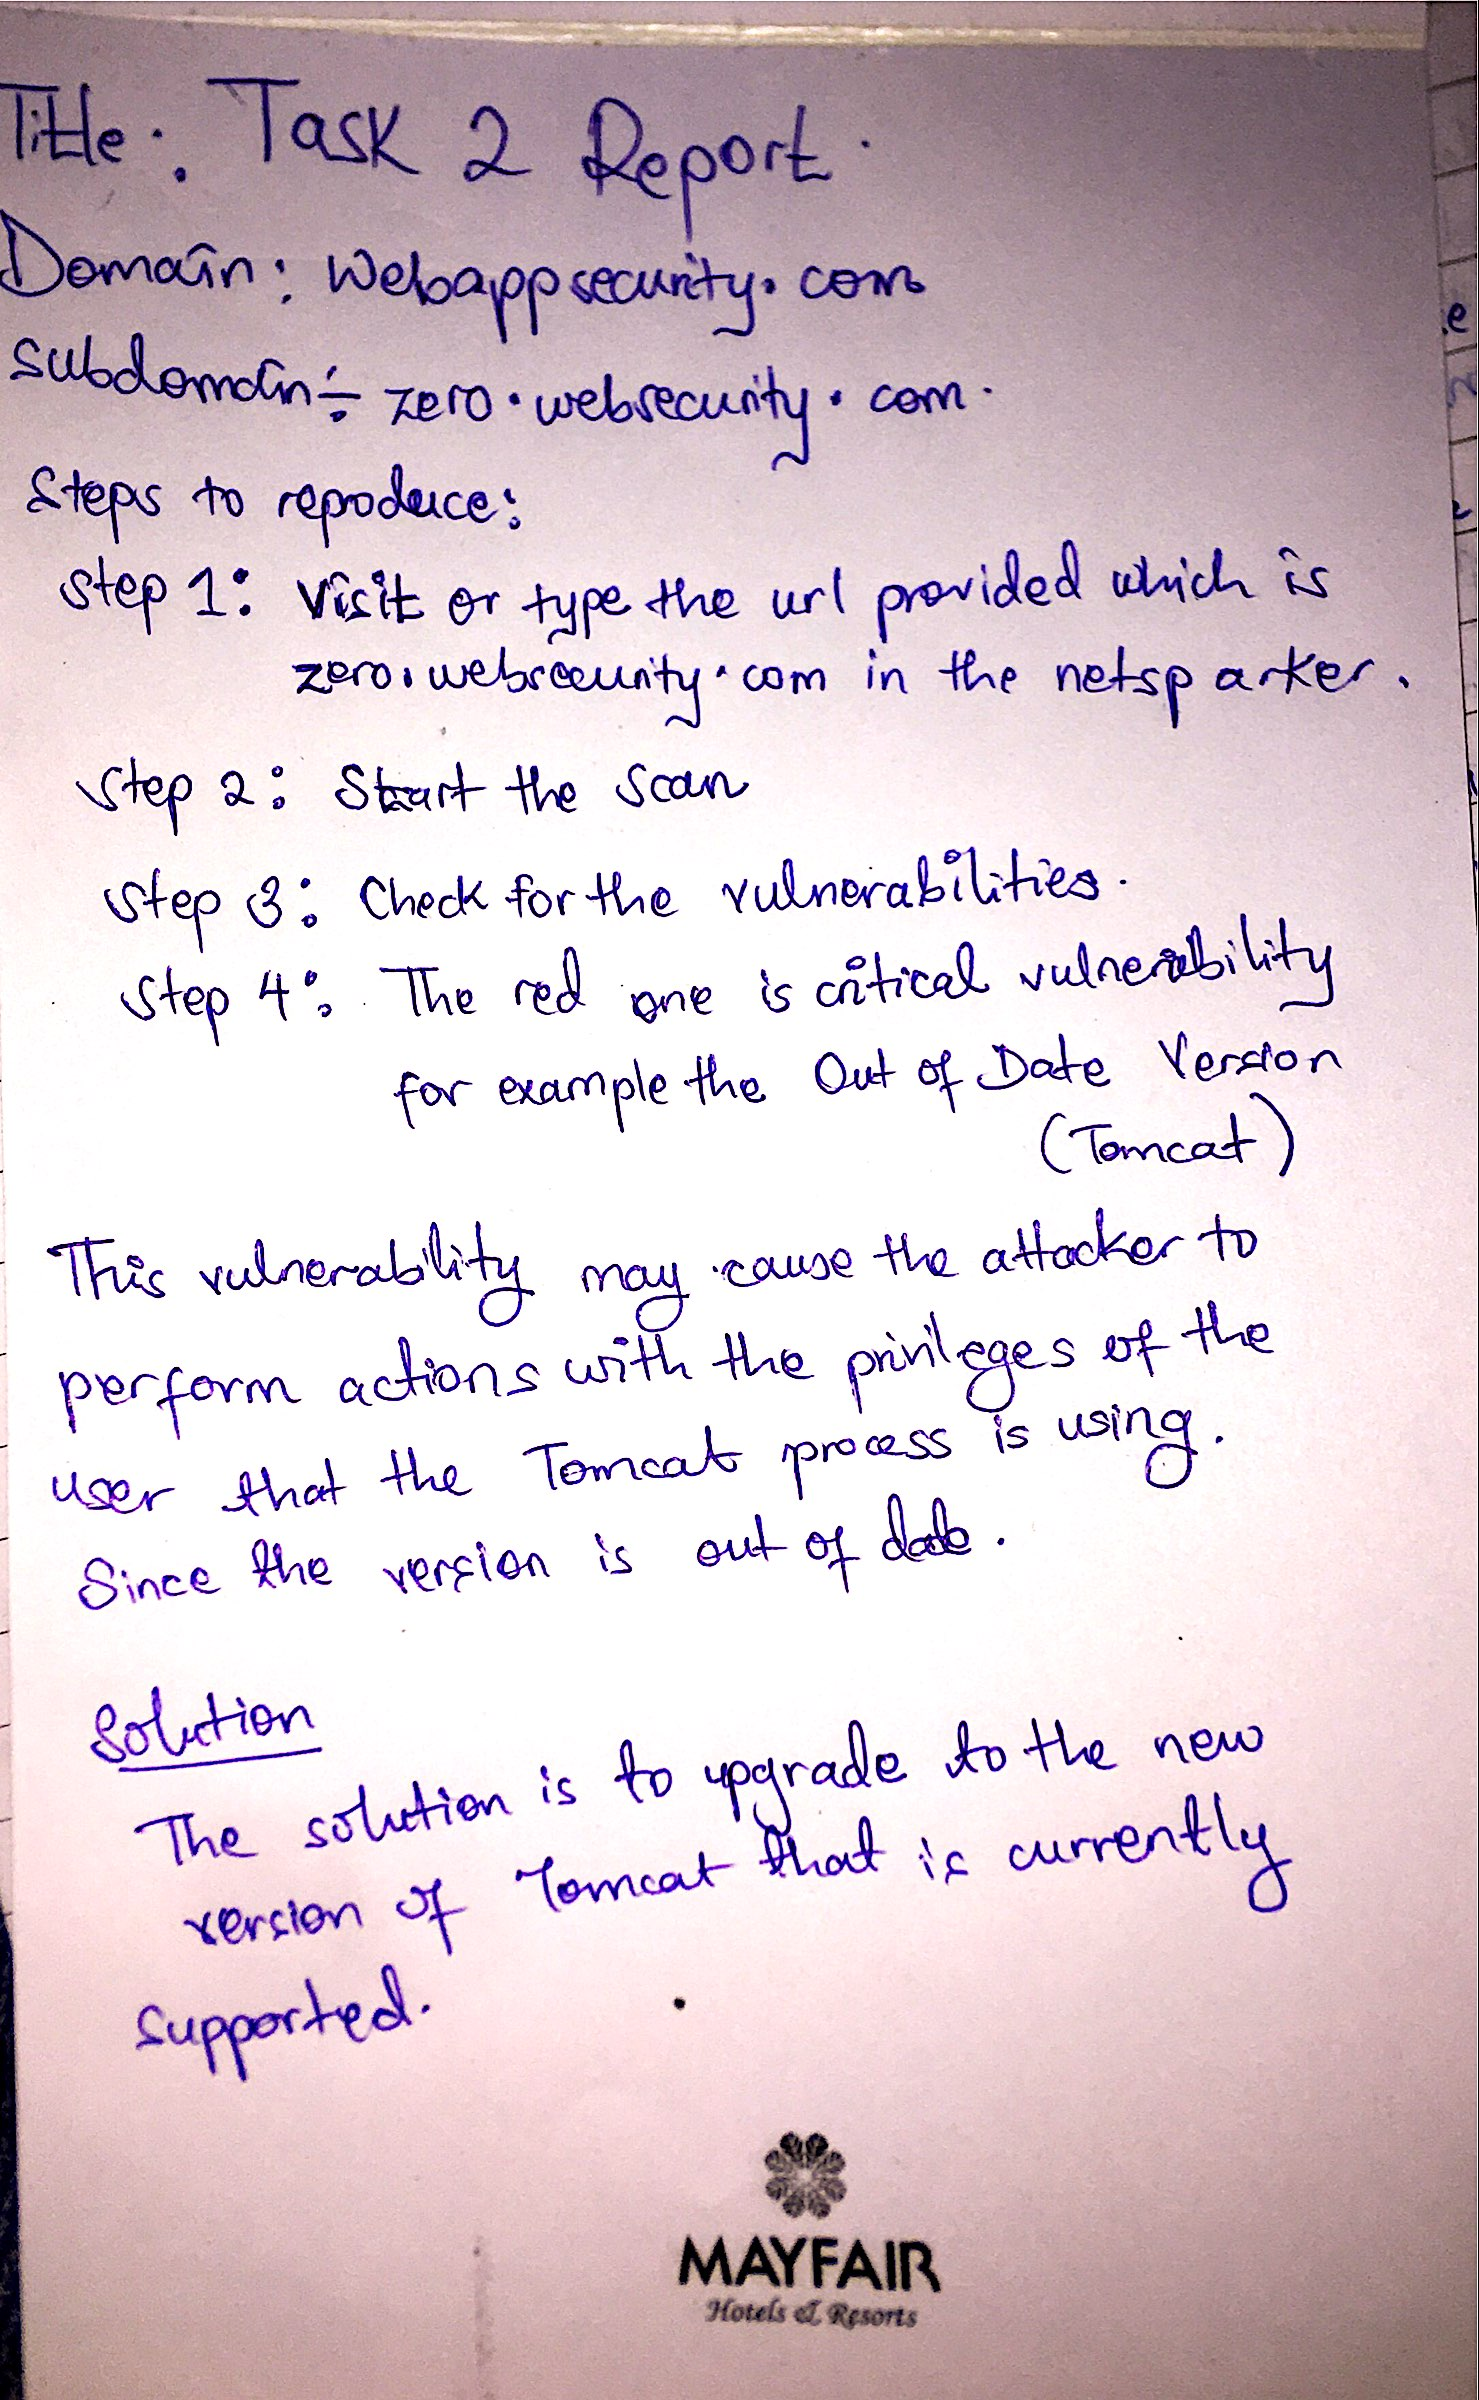 Title: Task 2 Report.
Domain: Webappsecurity.com
Subdomain: zero.websecurity.com.
Steps to reproduce:
Step 1: Visit or type the url provided which is
zero.websecurity.com in the netsparker.
Step 2: Start the scan
Step 3: Check for the vulnerabilities.
Step 4: The red one is critical vulnerability
for example the Out of Date Version
(Tomcat)
This vulnerability may cause the attacker to
perform actions with the privileges of the
user that the Tomcat process is using.
Since the version is out of date.
Solution
The solution is to upgrade to the new
version of Tomcat that is currently
supported.
MAYFAIR
Hotels & Resorts